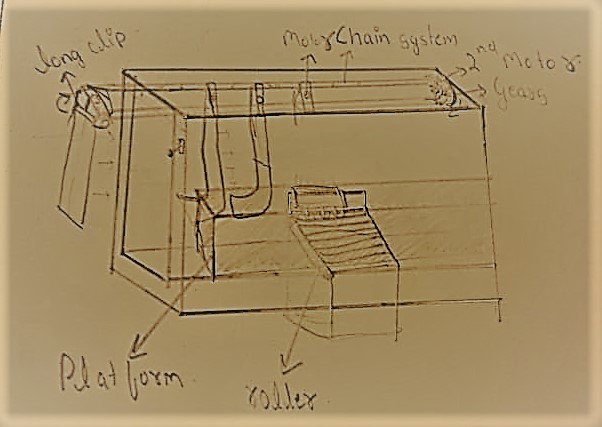 long clip
Motor Chain system
2nd Motor
Gears
Platform
roller